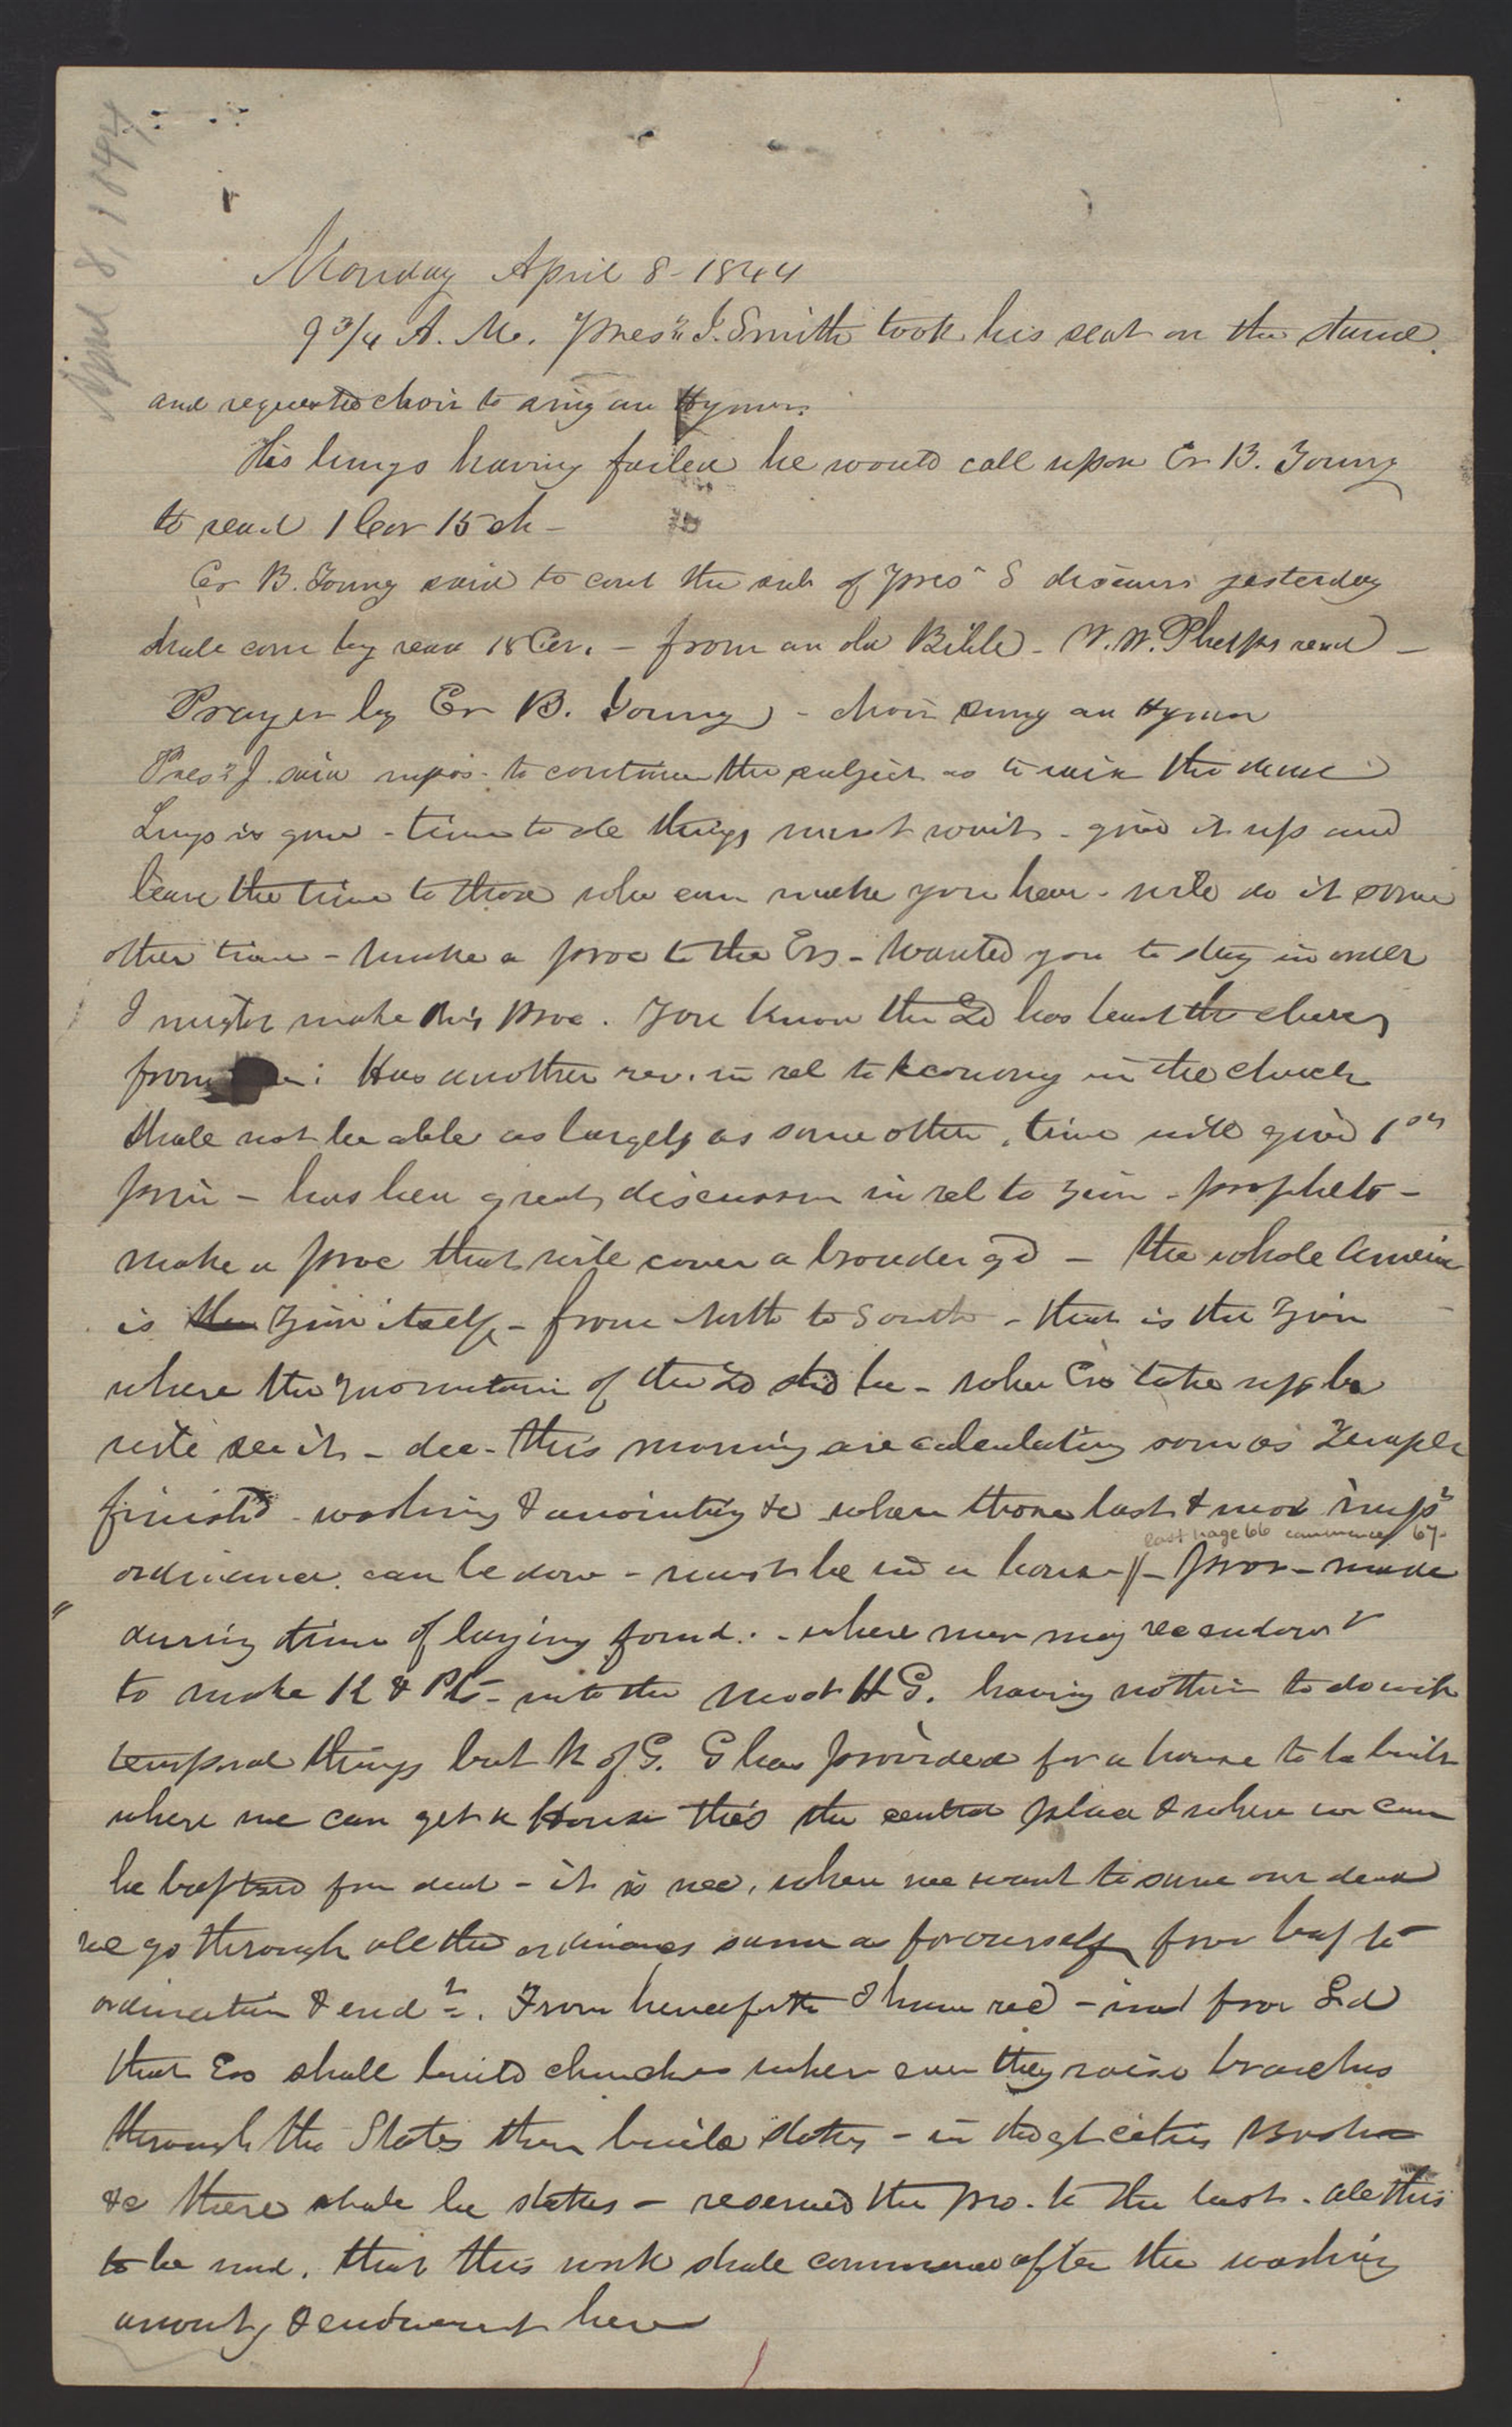 April 8, 1844
Monday April 8 - 1844
9 3/4 A. M. Presn J. Smith took his seat on the stand
and requested choir to sing an Hymn.
His lungs having failed he would call upon Er B. Young
to read 1 Cor 15 ch -
Er B. Young said to cont the sub of Pres S discours yesterday
shall com by read 15 Cor. - from an old Bible - W. W. Phelps read -
Prayer by Er B. Young - choir sung an Hymn
Presn J. said impos. to continue the subject as to raise the dead
Lungs is gone - time to all things must wait - give it up and
leave the time to those who can make you hear - will do it some
other time - make a proc to the Ers - wanted you to stay in order
I might make this proc. You know the Ld has lead the church
from : Has another rev. in rel to economy in the church
shall not be able as largely as some other time will give 1st
prin - has been great discussion in rel to Zion - prophets -
make a proc that will cover a broader gd - the whole America
is the Zion itself - from North to South - that is the Zion
where the mountain of the Ld shd be - when Ers take up be
will see it - dec - this morning are calculating soon as Temple
finishd - washing & anointing &c when those last & mor impt
last page 66 commence 67-
ordinance can be done - must be in a house // - prov - made
during time of laying found. - where men may re endowt
to make K & Pts - unto the Most H G. having nothin to do with
temporal things but K of G. G has provided for a house to be built
where we can get a House this the central place & where we can
be baptized for dead - it is nec, when we want to save our dead
we go through all the ordinances same as for ourself from bap to
ordination & endt. From henceforth I have recd - inst from Ld
that Ers shall build churches where ever they raise branches
through the States then build stakes - in the gt cities Boston
&c there shall be stakes - reserved the pro. to the last. all this
to be und. that this work shall commence after the washing
anointg & endowment here